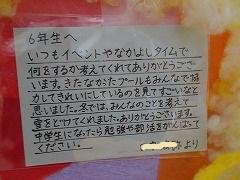 6年生へ
いつもイベントやなかよしタイムで
何をするか考えてくれてありがとうござ
います。きたなかったプールもみんなで協
力してきれいにしているのを見てすごいなと
思いました。冬では、みんなのことを考えて
雪をどけてくれました。ありがとうございます。
中学生になったら勉強や部活をがんばって
ください。
より